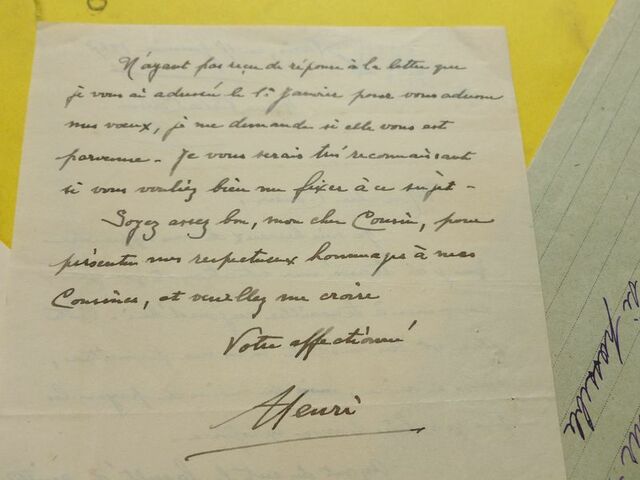 N'ayant pas reçu de réponse à la lettre que
je vous ai adressée le 1er Janvier pour vous adresser
mes vœux, je me demande si elle vous est
parvenue - Je vous serais très reconnaissant
si vous vouliez bien me fixer à ce sujet -
Soyez assez bon, mon cher Cousin, pour
présenter mes respectueux hommages à mes
Cousines, et veuillez me croire
Votre affectionné
Henri
si possible